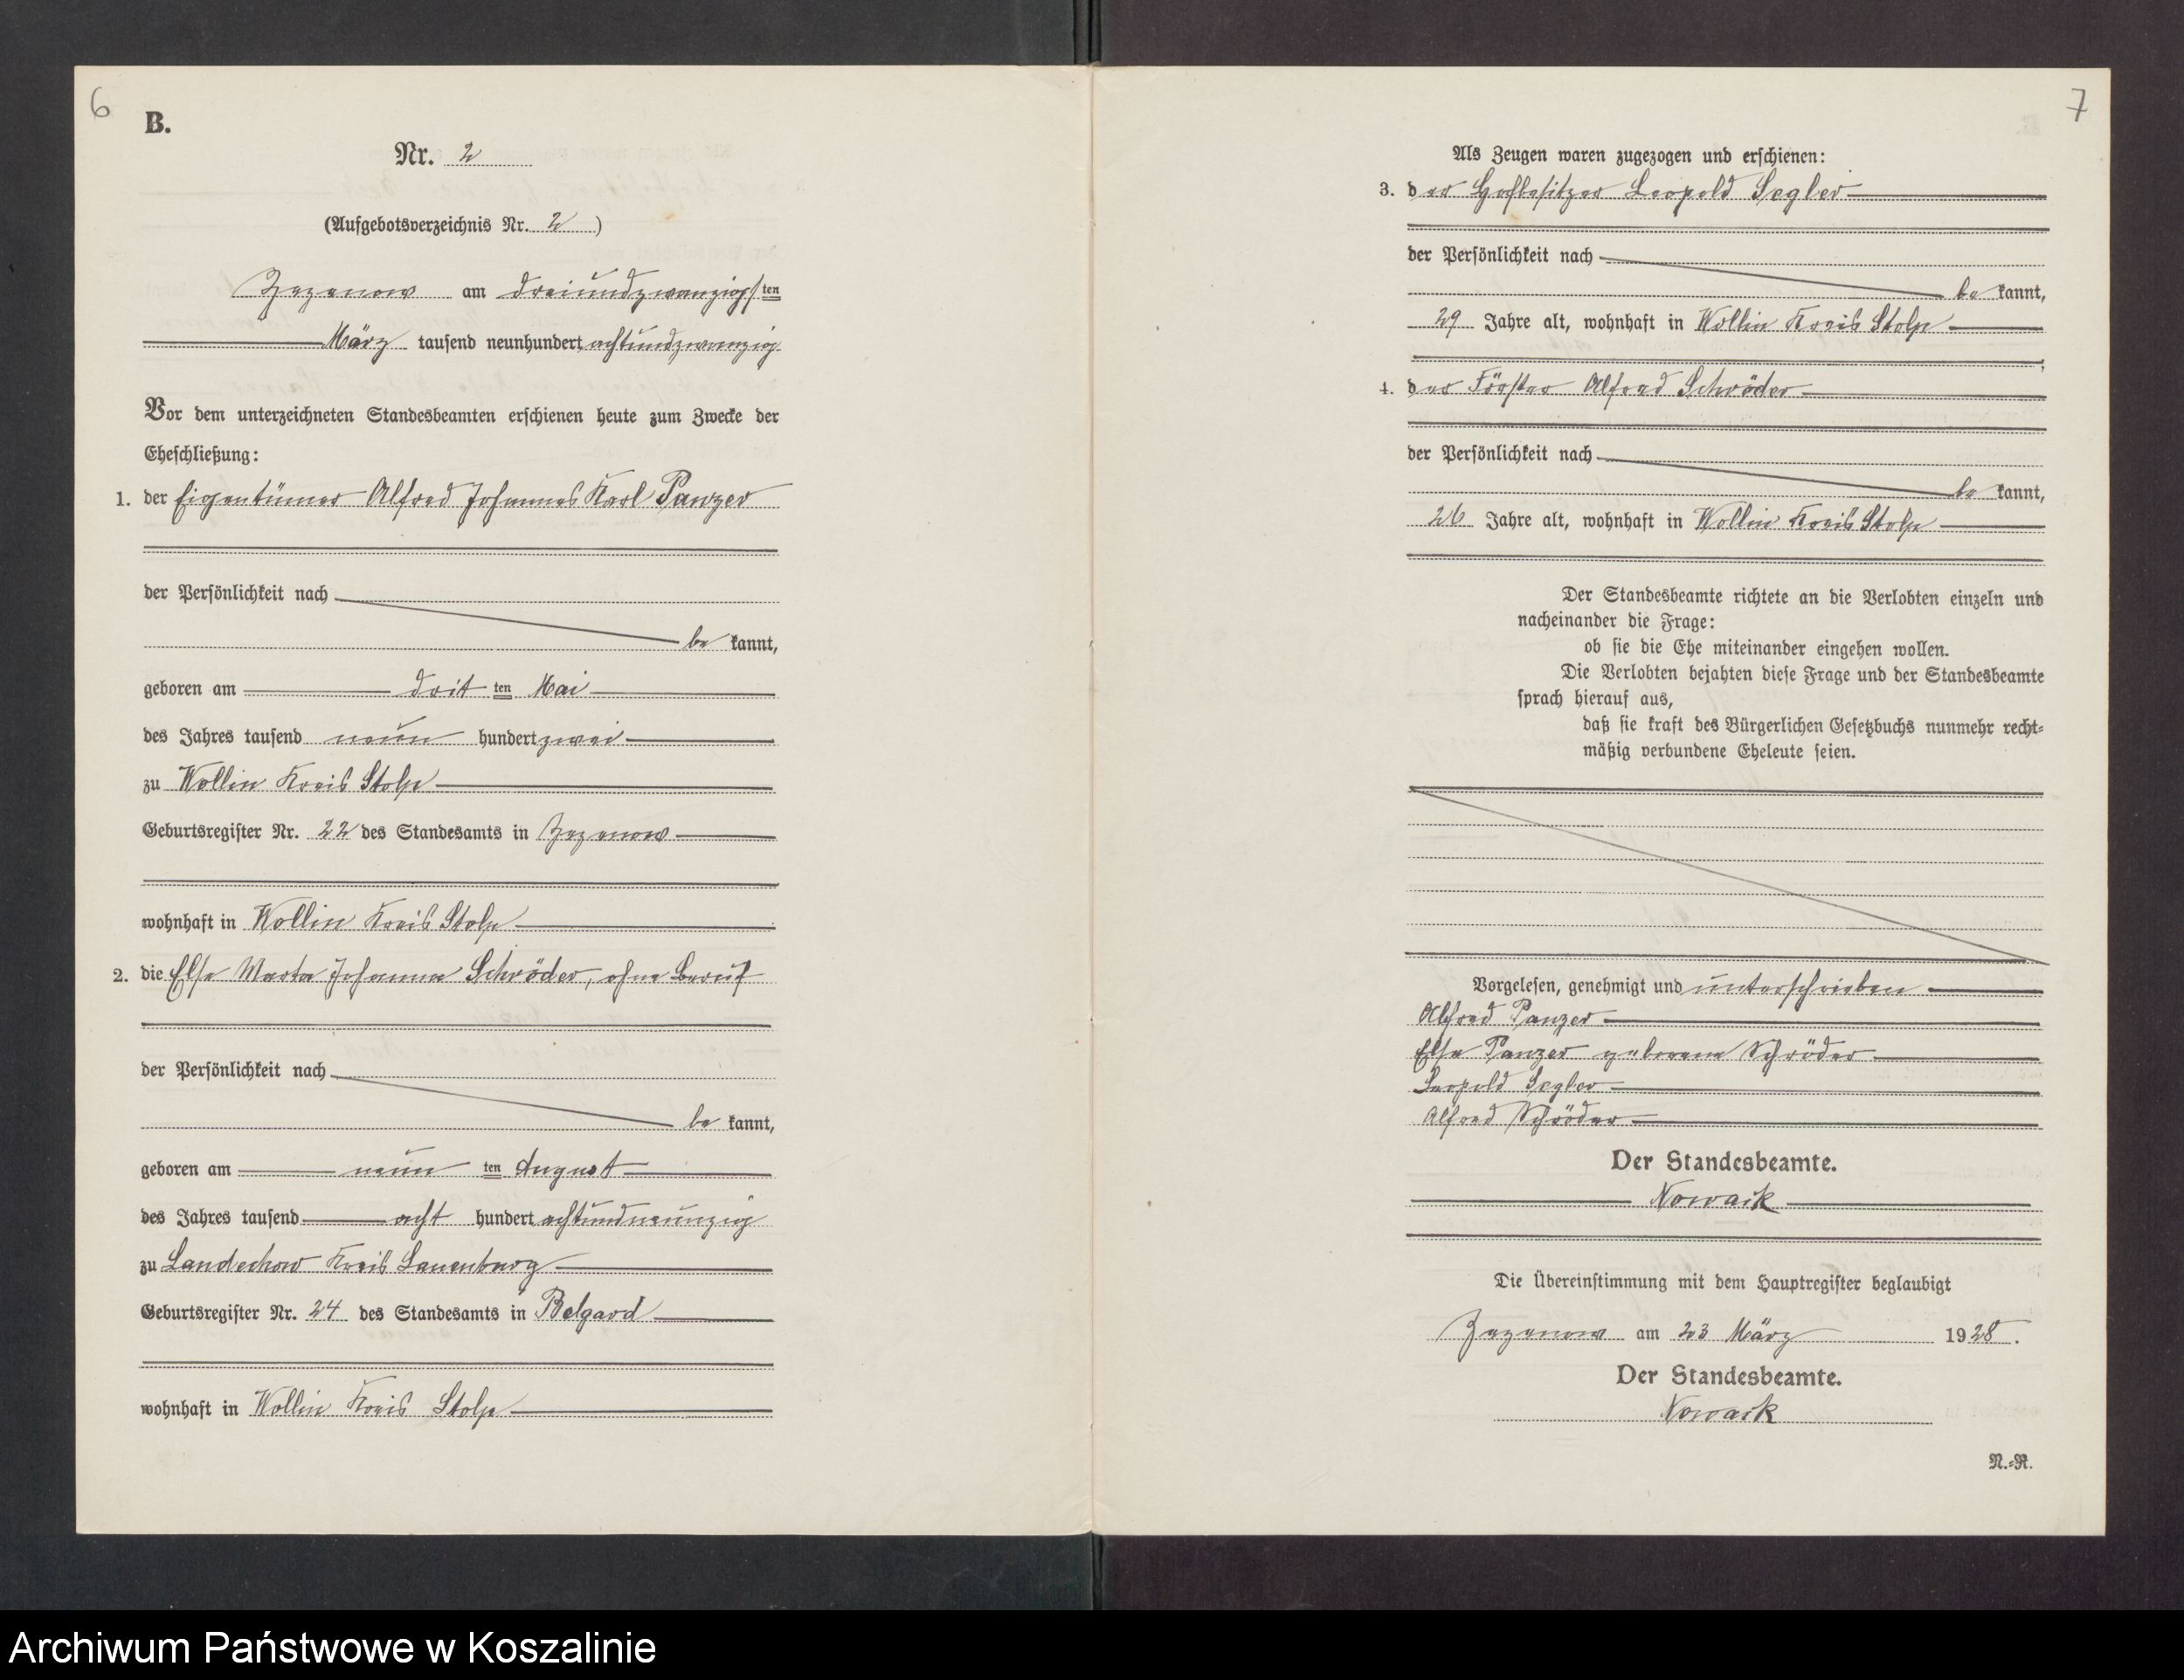 6
B.
Nr. 2
(Aufgebotsverzeichnis Nr. 2)
Zezenow am dreiundzwanzigsten
März tausend neunhundert achtundzwanzig
Vor dem unterzeichneten Standesbeamten erschienen heute zum Zwecke der
Eheschließung:
1. der Eigentümer Alfred Johannes Karl Panzer
der Persönlichkeit nach
be kannt,
geboren am dritten Mai
des Jahres tausend neun hundert zwei
zu Wollin Kreis Stolp
Geburtsregister Nr. 22 des Standesamts in Zezenow
wohnhaft in Wollin Kreis Stolp
2. die Else Marta Johanna Schröder, ohne Beruf
der Persönlichkeit nach
be kannt,
geboren am neun ten August
des Jahres tausend acht hundert achtundneunzig
zu Landechow Kreis Lauenburg
Geburtsregister Nr. 24 des Standesamts in Belgard
wohnhaft in Wollin Kreis Stolp
7
Als Zeugen waren zugezogen und erschienen:
3. der Hofbesitzer Leopold Segler
der Persönlichkeit nach
be kannt,
29 Jahre alt, wohnhaft in Wollin Kreis Stolp
;
4. der Förster Alfred Schröder
der Persönlichkeit nach
be kannt,
26 Jahre alt, wohnhaft in Wollin Kreis Stolp
Der Standesbeamte richtete an die Verlobten einzeln und
nacheinander die Frage:
ob sie die Ehe miteinander eingehen wollen.
Die Verlobten bejahten diese Frage und der Standesbeamte
sprach hierauf aus,
daß sie kraft des Bürgerlichen Gesetzbuchs nunmehr recht-
mäßig verbundene Eheleute seien.
Vorgelesen, genehmigt und unterschrieben
Alfred Panzer
Else Panzer geborene Schröder
Leopold Segler
Alfred Schröder
Der Standesbeamte.
Nowack
Die Übereinstimmung mit dem Hauptregister beglaubigt
Zezenow am 23 März 1928.
Der Standesbeamte.
Nowack
N.-R.
Archiwum Państwowe w Koszalinie